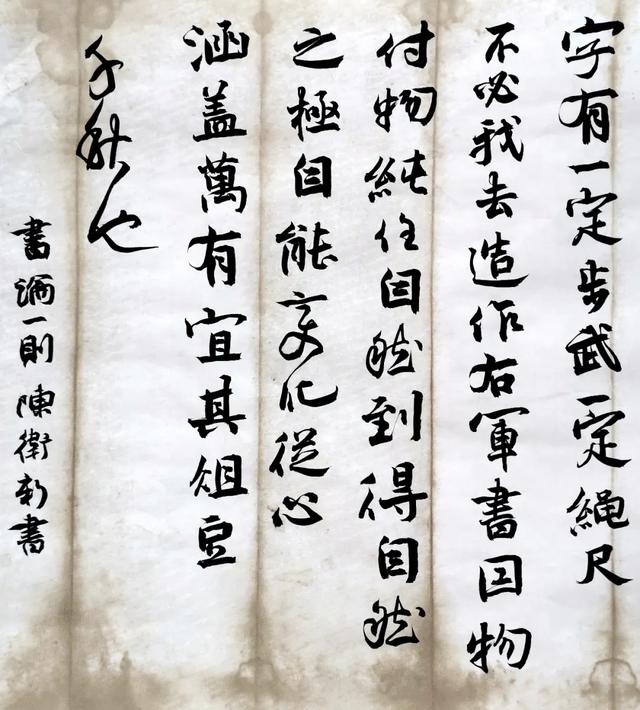 字有一定步武一定繩尺
不必我去造作右軍書因物
付物純任自然到得自然
之極自能變化從心
涵盖萬有宜其俎豆
千秋也
書論一則 陳衛新書